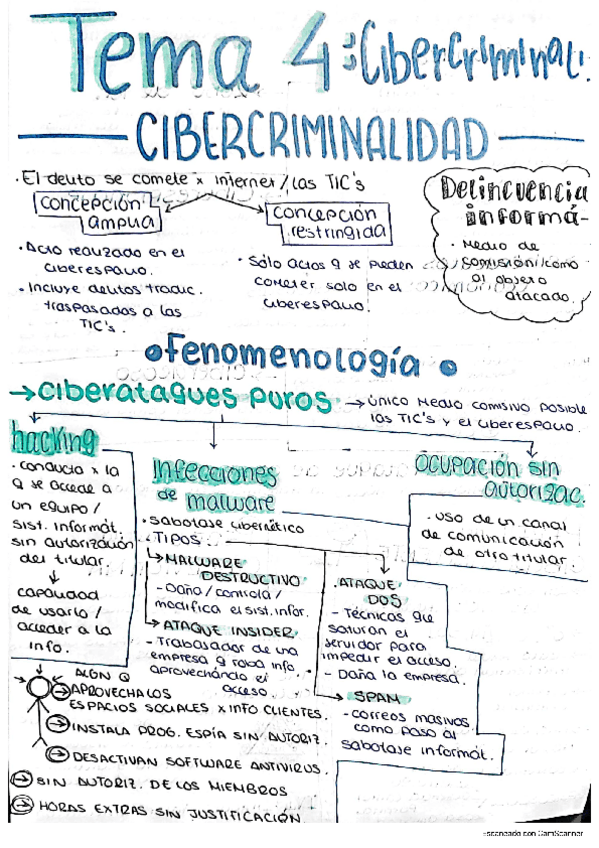 Tema 4: Cibercriminali.
CIBERCRIMINALIDAD
· El delito se comete x internet / las TIC's
concepción amplia
· Acto realizado en el ciberespacio.
· Incluye delitos tradic. traspasados a las TIC's.
concepción restringida
· Sólo actos q se pueden cometer solo en el ciberespacio.
Delincuencia informá-
· Medio de comisión / como al objeto atacado.
• Fenomenología •
→ ciberataques puros → único medio comisivo posible las TIC's y el ciberespacio.
hacking
· conducta x la q se accede a un equipo / sist. informát. sin autorización del titular.
↓
capacidad de usarlo / acceder a la info.
Infecciones de malware
· Sabotaje cibernético
· Tipos
→ MALWARE DESTRUCTIVO
- Daña / controla / modifica el sist. infor.
→ ATAQUE INSIDER
- Trabajador de una empresa q roba info. aprovechando el acceso.
. ATAQUE DOS
- Técnicas que saturan el servidor para impedir el acceso.
- Daña la empresa.
→ SPAM
- correos masivos como paso al sabotaje informát.
ocupación sin autorizac.
· uso de un canal de comunicación de otro titular.
ALGN Q
→ APROVECHA LOS ESPACIOS SOCIALES X INFO CLIENTES.
→ INSTALA PROG. ESPÍA SIN AUTORIZ.
→ DESACTIVAN SOFTWARE ANTIVIRUS.
→ SIN AUTORIZ. DE LOS MIEMBROS
→ HORAS EXTRAS SIN JUSTIFICACIÓN
Escaneado con CamScanner